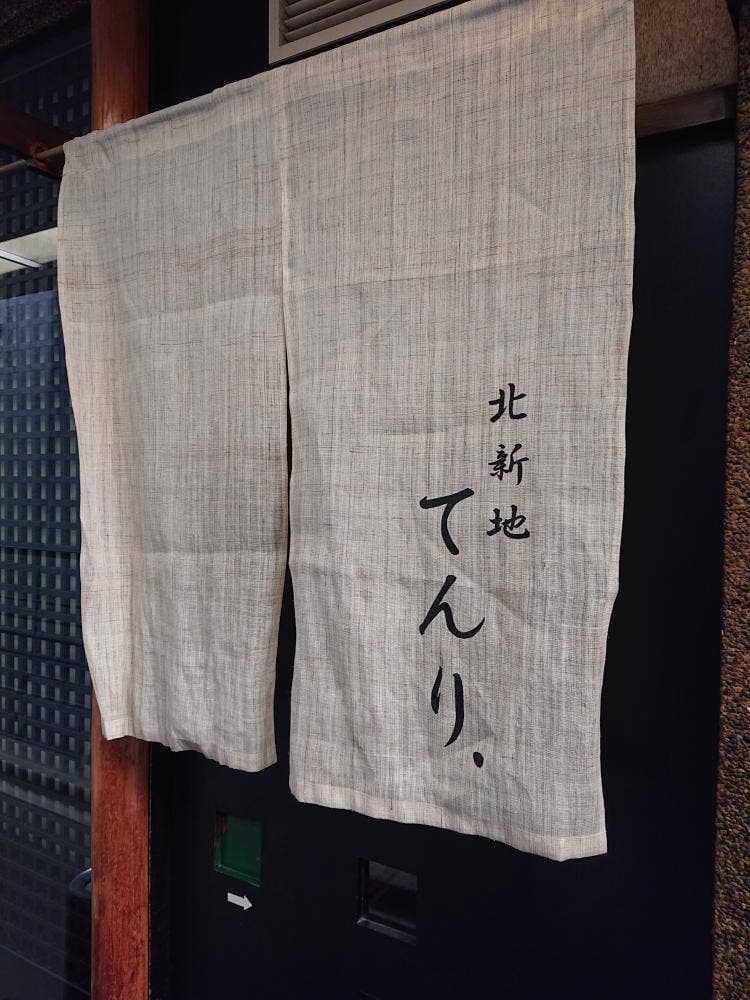 北新地
てんり.